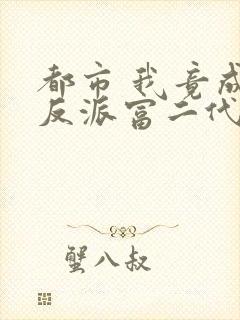 都市我竟成
反派富二代
蟹八叔